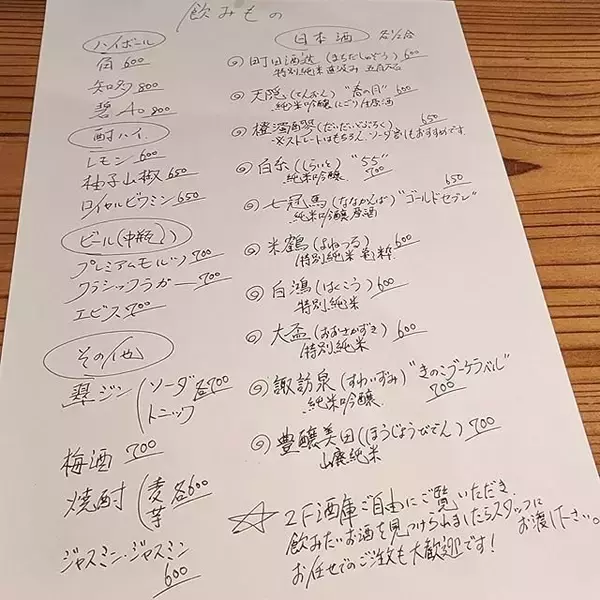 飲みもの
ハイボール
角 600
知多 800
碧Ao 900
酎ハイ
レモン 600
柚子山椒 650
ロイヤルビタミン 650
ビール(中瓶)
プレミアムモルツ 700
クラシックラガー 700
エビス 700
その他
翠ジン(ソーダ 各700
トニック
梅酒 700
焼酎(麦 各600
芋
ジャスミン・ジャスミン
600
日本酒
◎町田酒造(まちだしゅぞう) 600
特別純米 直汲み 五百万石
◎天隠(てんおん)"春の目" 600
純米吟醸 にごり生原酒
◎橙濁酵(だいだいどぶろく) 650
※ストレートはもちろん、ソーダ割もおすすめです。
◎白糸(しらいと)"55"
純米吟醸 700
◎七冠馬(ななかんば)"ゴールドセブン" 650
純米吟醸原酒
◎米鶴(よねつる) 600
(特別純米 粋
◎白鴻(はくこう) 600
特別純米
◎大盃(おおさかずき) 600
特別純米
◎諏訪泉(すわいずみ)"きのこゴーケラベル"
純米吟醸 700
◎豊醸美田(ほうじょうびでん) 700
山廃純米
☆2F酒庫ご自由にご覧いただき、
飲みたいお酒を見つけられましたらスタッフに
お渡し下さい。
お任せでのご注文も大歓迎です!